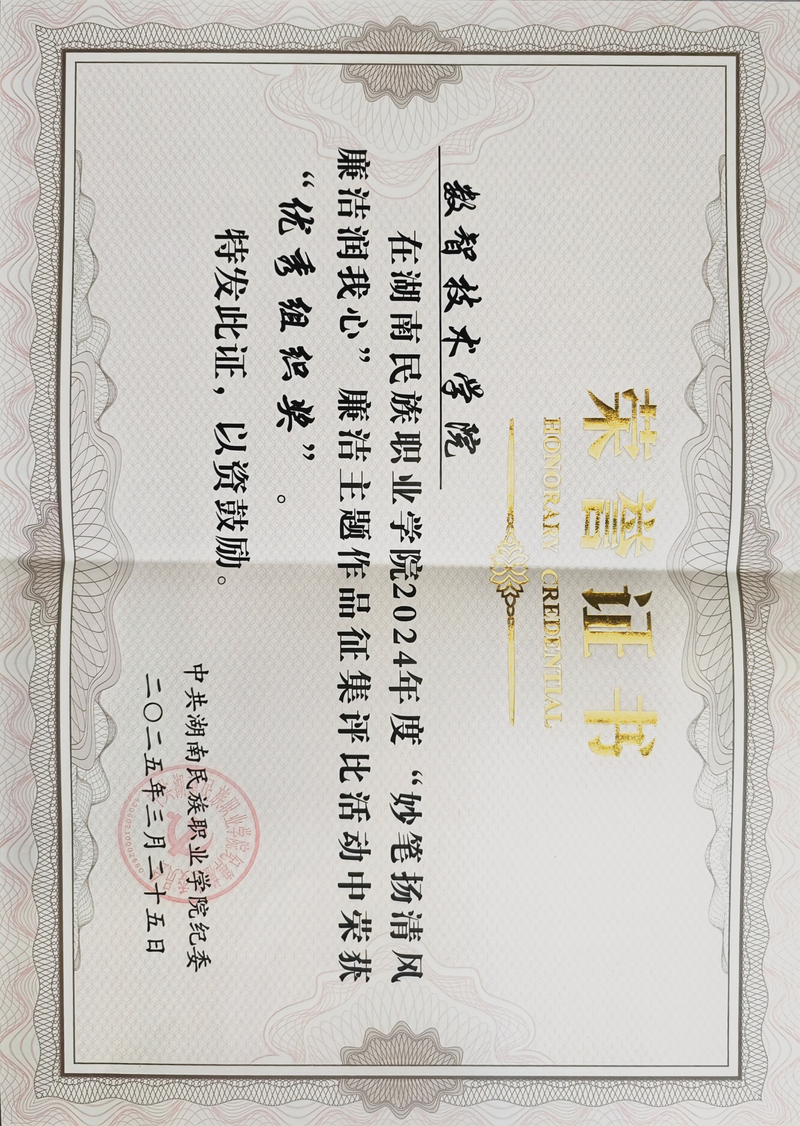 荣誉证书
HONORARY CREDENTIAL
数智技术学院
在湖南民族职业学院2024年度“妙笔扬清风
廉洁润我心”廉洁主题作品征集评比活动中荣获
“优秀组织奖”。
特发此证，以资鼓励。
中共湖南民族职业学院纪委
二〇二五年三月二十五日